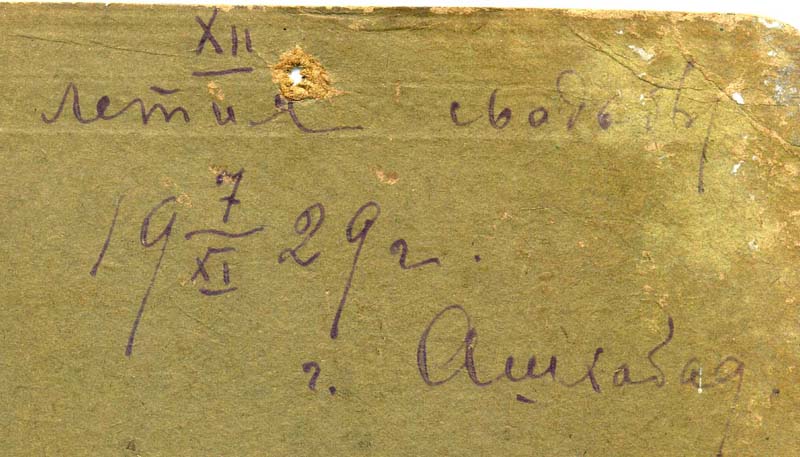 XII
летия свадьбы
19 7/XI 29 г.
г. Ашхабад.